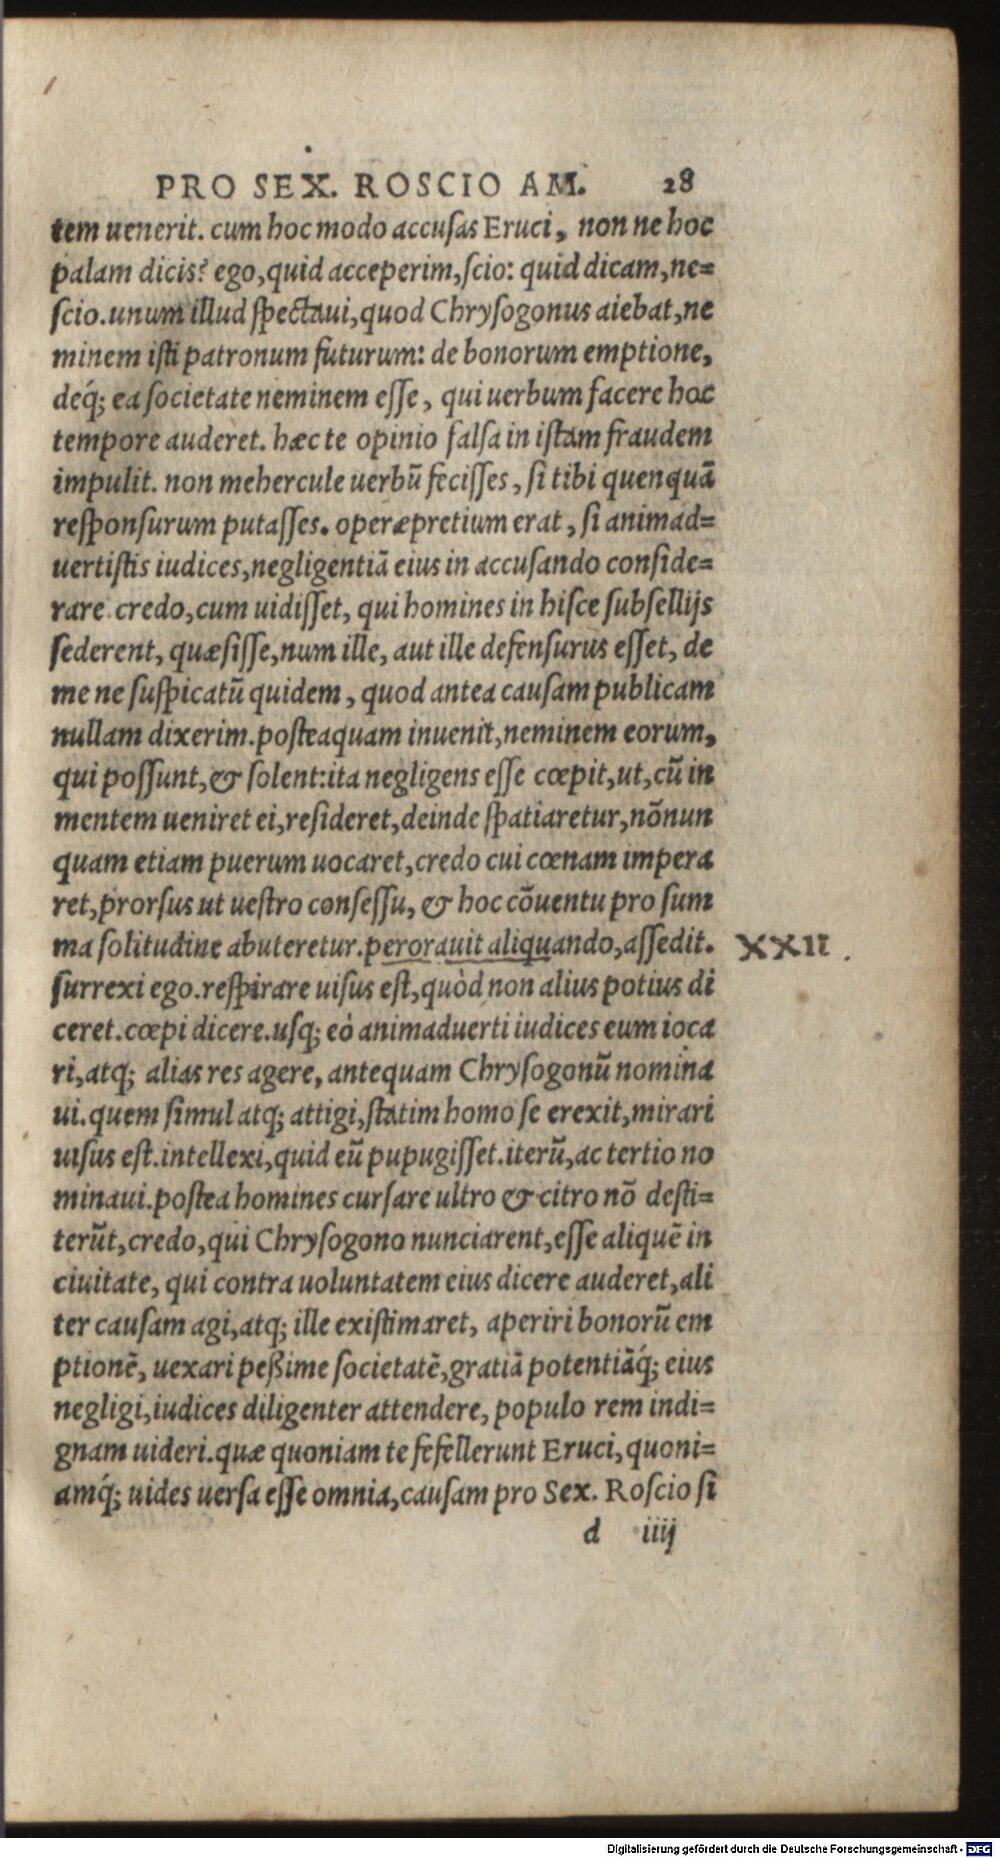 PRO SEX. ROSCIO AM. 28
tem uenerit. cum hoc modo accusas Eruci, non ne hoc
palam dicis? ego, quid acceperim, scio: quid dicam, ne=
scio. unum illud spectaui, quod Chrysogonus aiebat, ne
minem isti patronum futurum: de bonorum emptione,
deq́; ea societate neminem esse, qui uerbum facere hoc
tempore auderet. hæc te opinio falsa in istam fraudem
impulit. non mehercule uerbū fecisses, si tibi quenquā
responsurum putasses. operæpretium erat, si animad=
uertistis iudices, negligentiā eius in accusando conside=
rare. credo, cum uidisset, qui homines in hisce subsellijs
sederent, quæsisse, num ille, aut ille defensurus esset, de
me ne suspicatū quidem, quod antea causam publicam
nullam dixerim. posteaquam inuenit, neminem eorum,
qui possunt, & solent: ita negligens esse cœpit, ut, cū in
mentem ueniret ei, resideret, deinde spatiaretur, nōnun
quam etiam puerum uocaret, credo cui cœnam impera
ret, prorsus ut uestro consessu, & hoc cōuentu pro sum
ma solitudine abuteretur. perorauit aliquando, assedit. XXII.
surrexi ego. respirare uisus est, quòd non alius potius di
ceret. cœpi dicere. usq; eò animaduerti iudices eum ioca
ri, atq; alias res agere, antequam Chrysogonū nomina
ui. quem simul atq; attigi, statim homo se erexit, mirari
uisus est. intellexi, quid eū pupugisset. iterū, ac tertio no
minaui. postea homines cursare ultro & citro nō desti=
terūt, credo, qui Chrysogono nunciarent, esse aliquē in
ciuitate, qui contra uoluntatem eius dicere auderet, ali
ter causam agi, atq; ille existimaret, aperiri bonorū em
ptionē, uexari peßime societatē, gratiā potentiāq́; eius
negligi, iudices diligenter attendere, populo rem indi=
gnam uideri. quæ quoniam te fefellerunt Eruci, quoni=
amq́; uides uersa esse omnia, causam pro Sex. Roscio si
d iiij
Digitalisierung gefördert durch die Deutsche Forschungsgemeinschaft - DFG